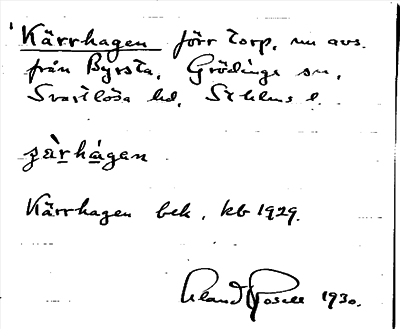 Kärrhagen förr torp, nu avs.
från Byrsta, Grödinge sn,
Svartlösa hd, Sthlms l.
kärhagen
Kärrhagen bek, kb 1929.
Erland Rosell 1930.